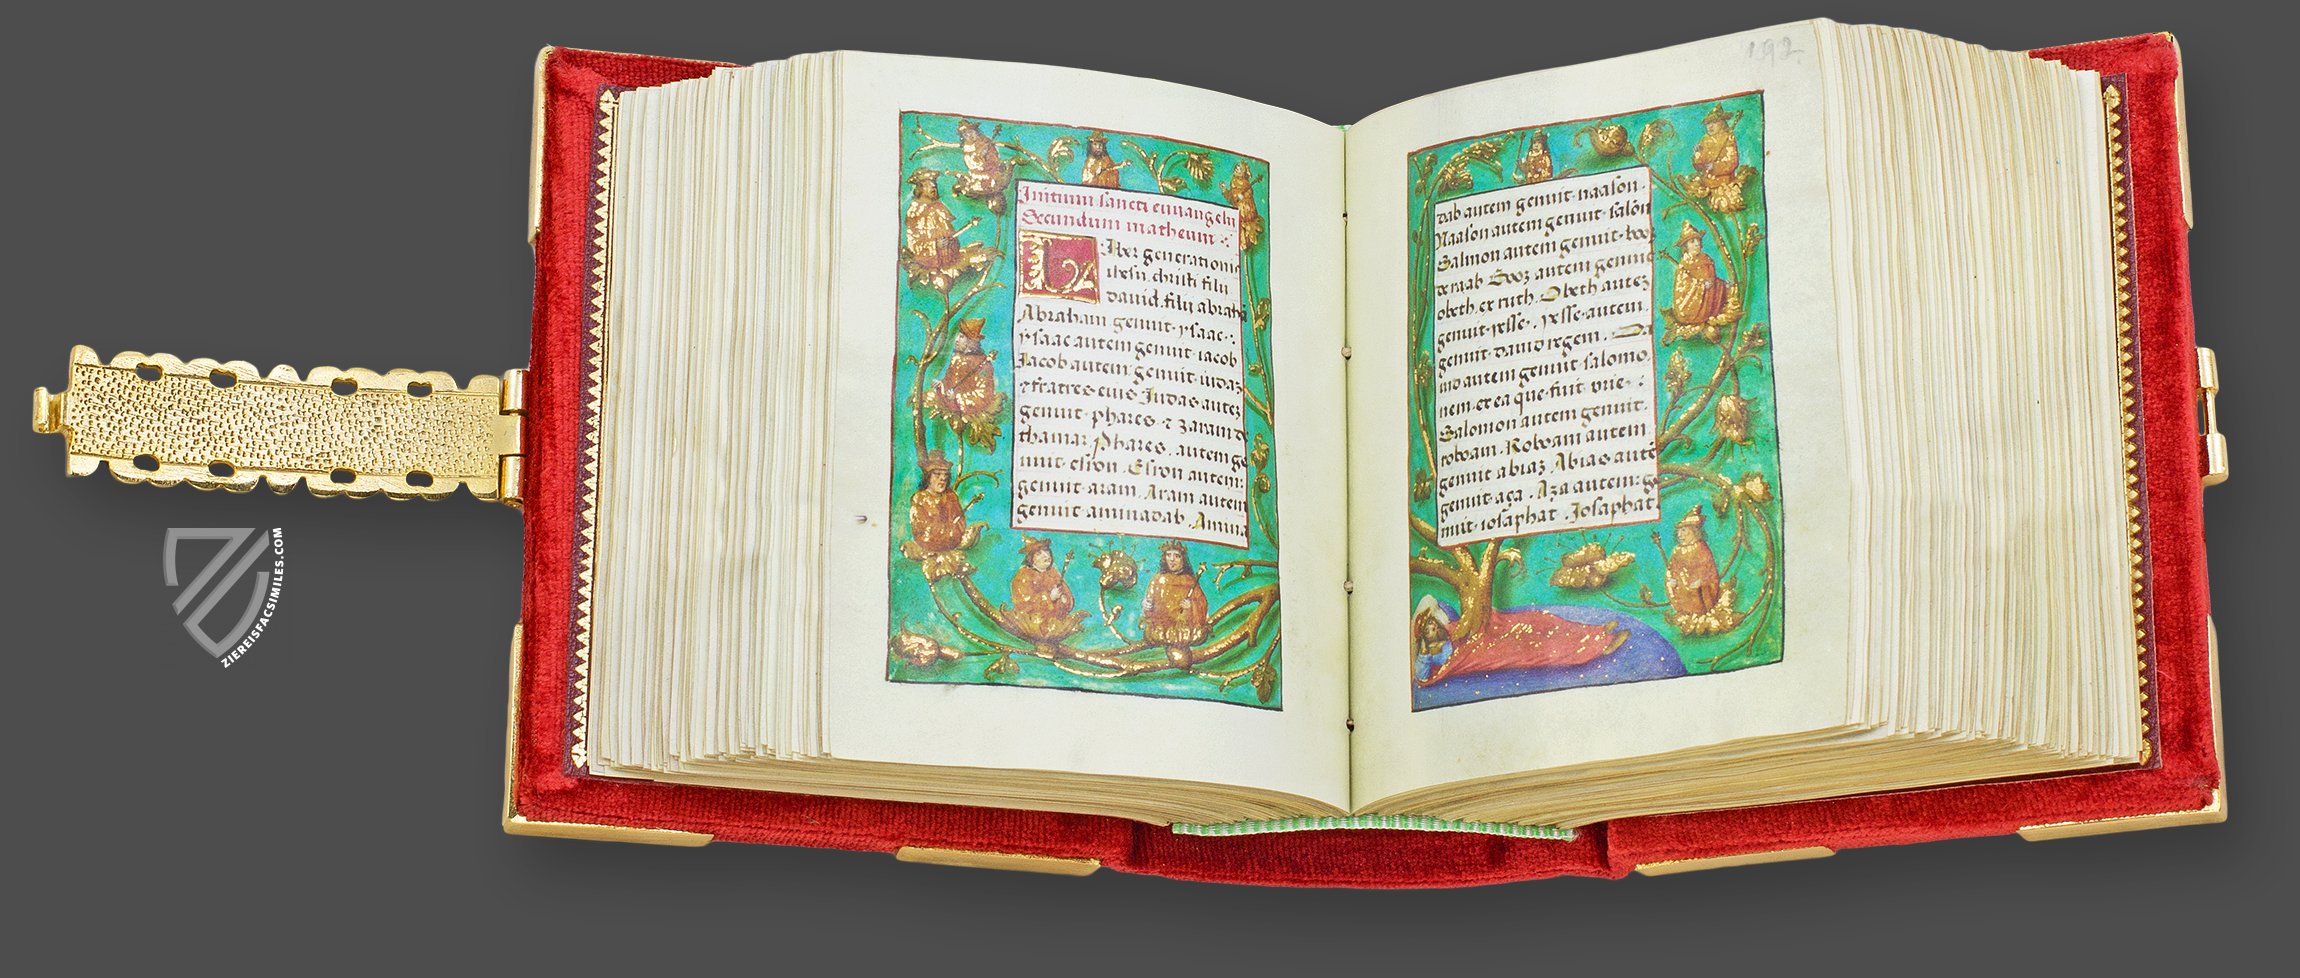 Initium sancti euuangelii
Secundum matheum
Liber generationis
ihesu christi filii
dauid. filii abrahe
Abraham genuit. ysaac.
ysaac autem genuit. iacob
Jacob autem genuit. iudaz
& fratres eius. Judas autez
genuit. phares. & zaram de
thamar. Phares. autem ge
nuit. esron. Esron autem.
genuit. aram. Aram autem
genuit. aminadab. Amina
192.
dab autem genuit. naason.
Naason autem genuit. salon
Salmon autem genuit. boo
de raab. Booz autem genuit
obeth. ex ruth. Obeth autez
genuit. yesse. yesse. autem.
genuit. dauid regem. Da
uid autem genuit. salomo
nem. ex ea que fuit vrie.
Salomon autem genuit.
roboam. Roboam autem
genuit abiaz. Abias aute
genuit. aza. Aza autem. ge
nuit. iosaphat. Josaphat
ZIEREISFACSIMILES.COM